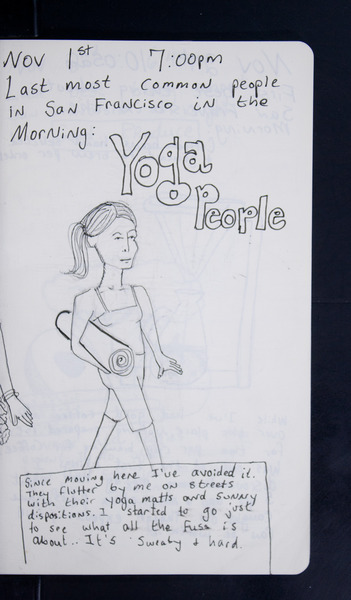 Nov 1st 7:00pm
Last most common people
in San Francisco in the
Morning:
Yoga
People
Since moving here I've avoided it.
They flutter by me on streets
with their yoga matts and sunny
dispositions. I started to go just
to see what all the fuss is
about.. It's sweaty & hard.